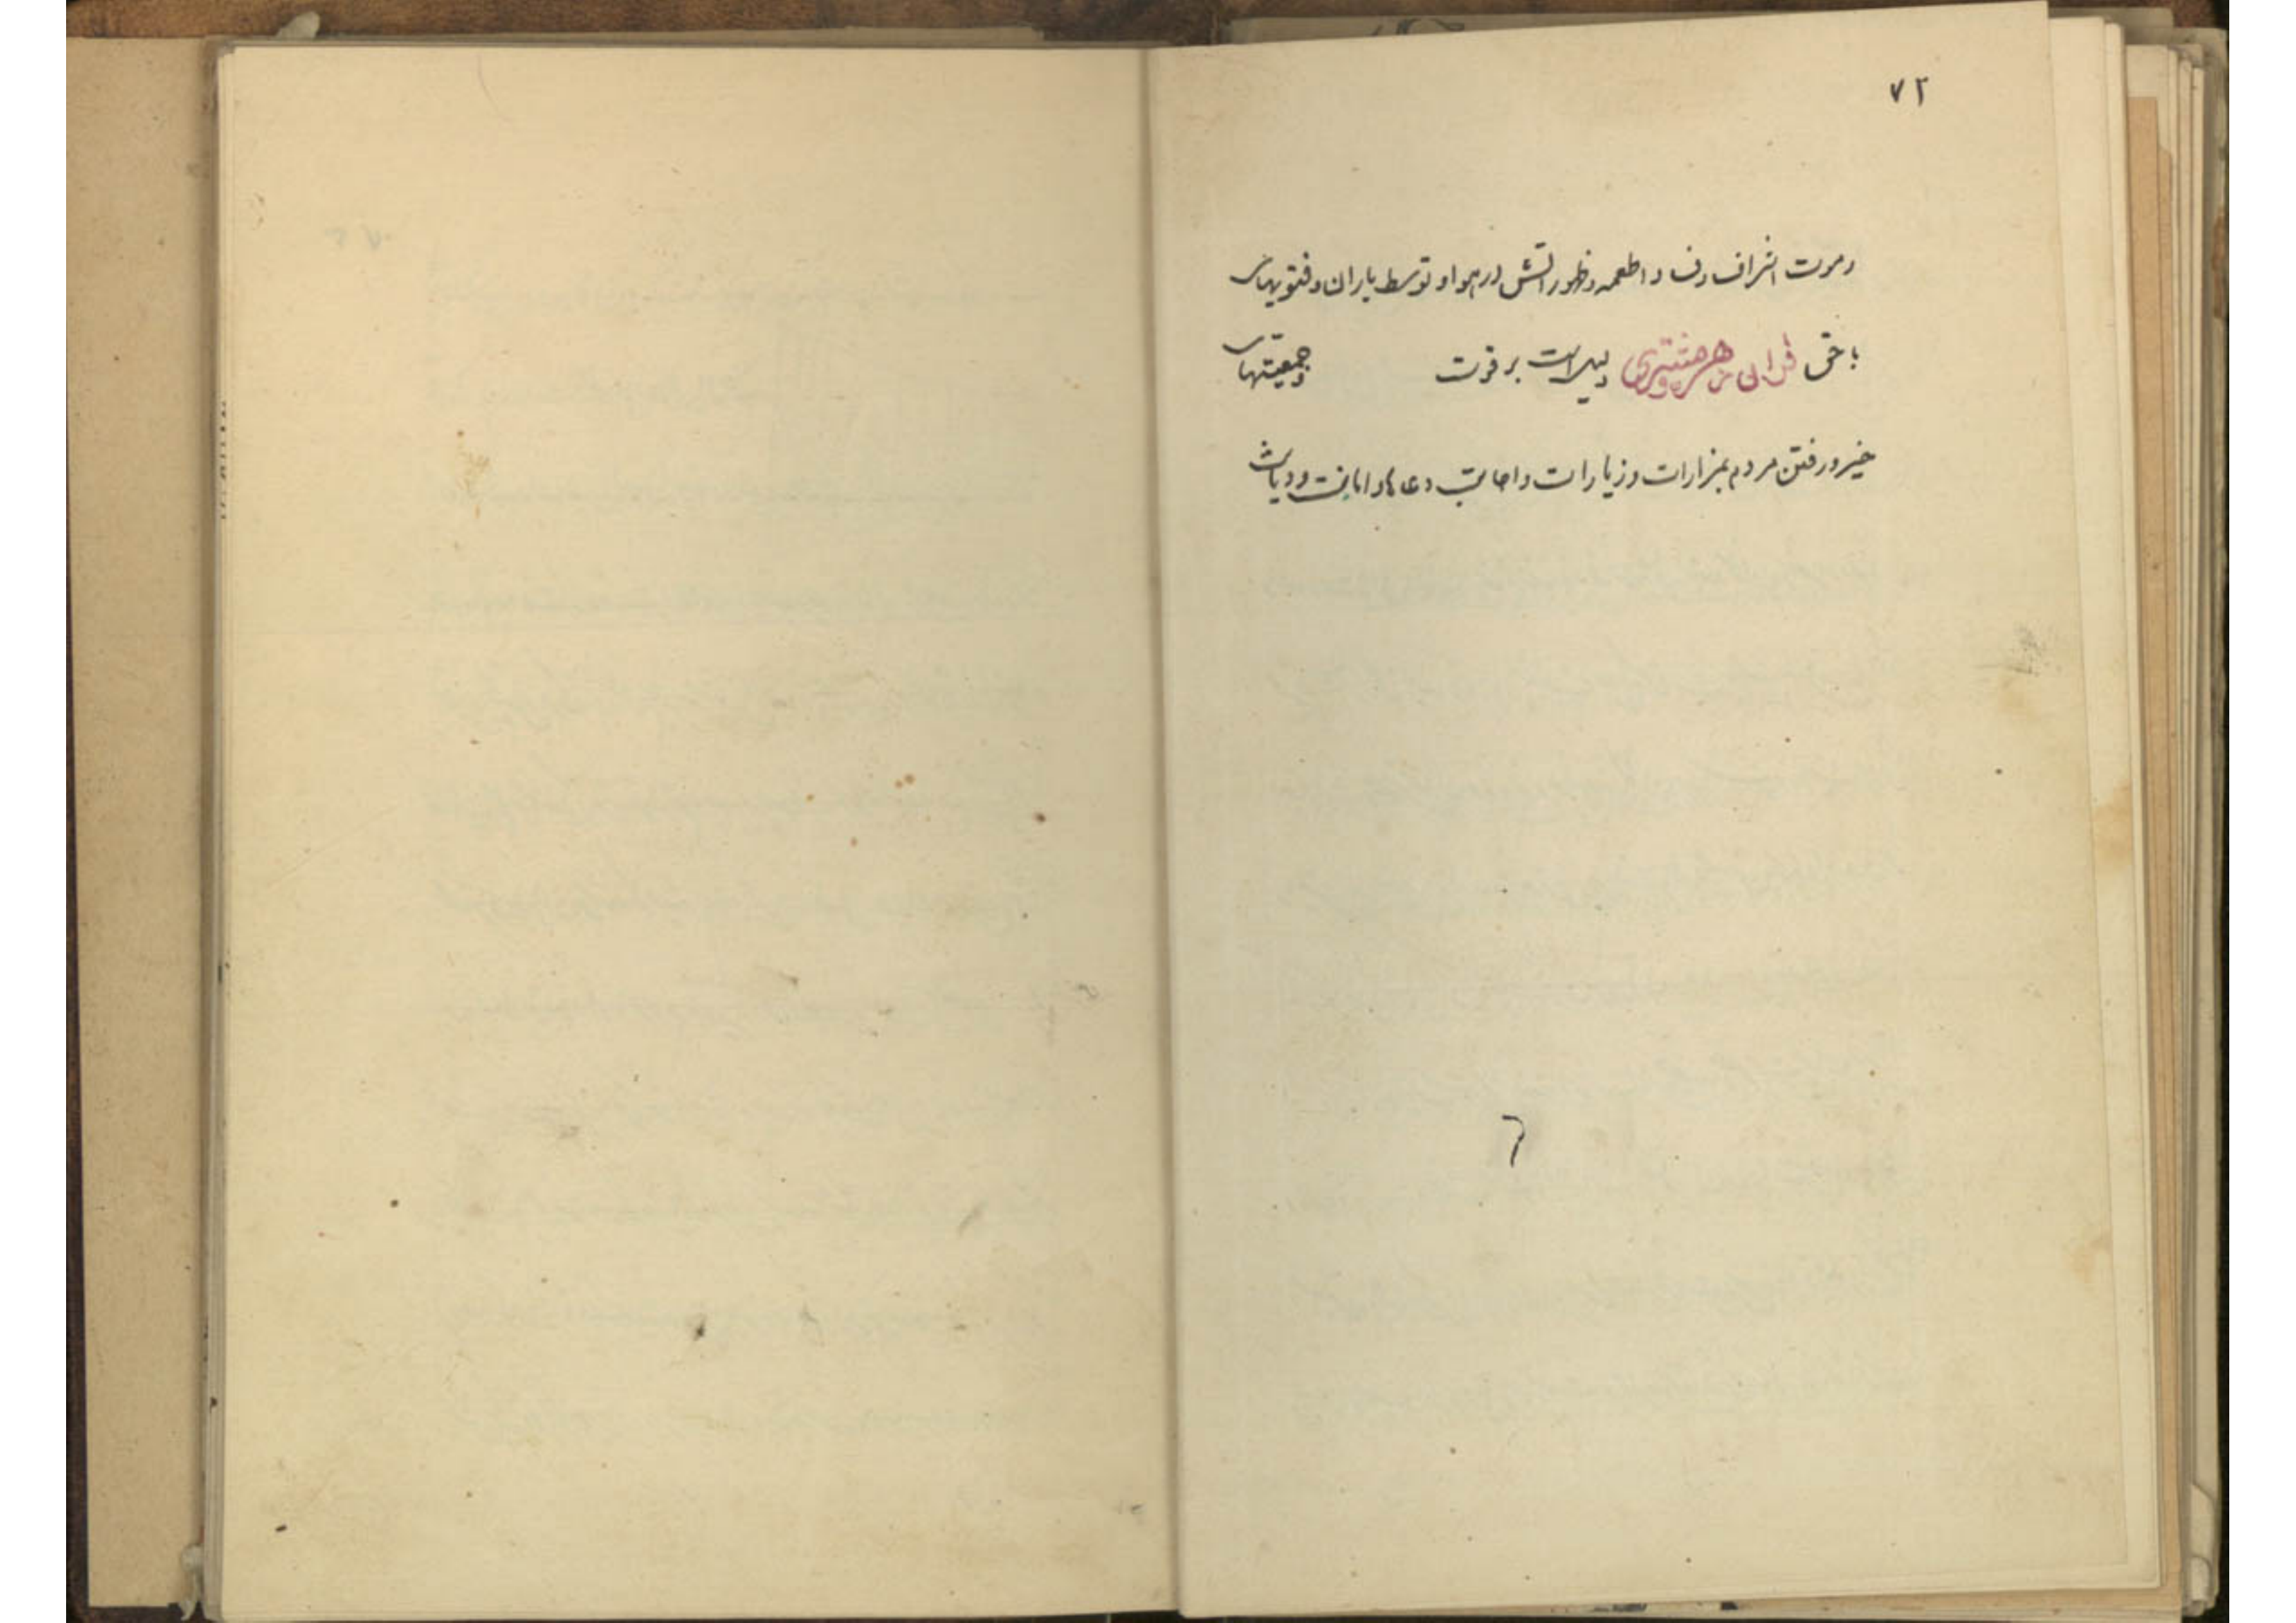 ۷۲
و موت اشراف و فساد اطعمه و ظهور آتش در هوا و توسط باران و فتویهای
باحق قران مشتری دلیلست بر قوت و جمعیتهای
خیر و رفتن مردم بمزارات و زیارات و اجابت دعاها و امانت و دیانت